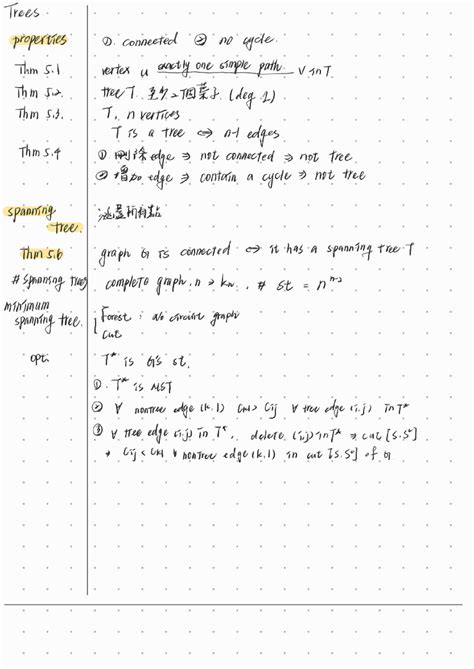 Trees
properties ① connected ② no cycle.
Thm 5.1 vertex u exactly one simple path v in T
Thm 5.2 tree T 至少2個葉子 (deg 1)
Thm 5.3. T, n vertices
T is a tree ⇔ n-1 edges
Thm 5.4 ① 刪除edge ⇒ not connected ⇒ not tree
② 增加 edge ⇒ contain a cycle ⇒ not tree
spanning tree. 涵蓋所有點
Thm 5.6 graph G is connected ⇔ it has a spanning tree T
# spanning trees complete graph, n → kn, # st = n^{n-2}
minimum
spanning tree. Forest : no circuit graph
cut
opt. T* is G's st.
①. T* is MST
② ∀ nontree edge (k,l) Ckl > Cij ∀ tree edge (i,j) in T*
③ ∀ tree edge (i,j) in T*, delete (i,j) in T* ⇒ cut [S.S^c]
→ Cij < Ckl ∀ nontree edge (k,l) in cut [S.S^c] of G